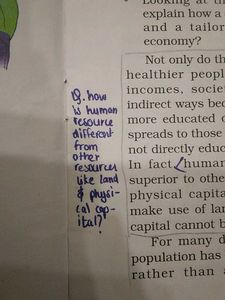 Looking at th
explain how a
and a tailor
economy?
Not only do th
healthier peopl
incomes, societ
indirect ways bec
more educated o
spreads to those
not directly educ
In fact, human
superior to othe
physical capita
make use of lan
capital cannot b
For many d
population has
rather than a
Q. how
is human
resource
different
from
other
resources
like land
& physi-
cal cap-
ital?